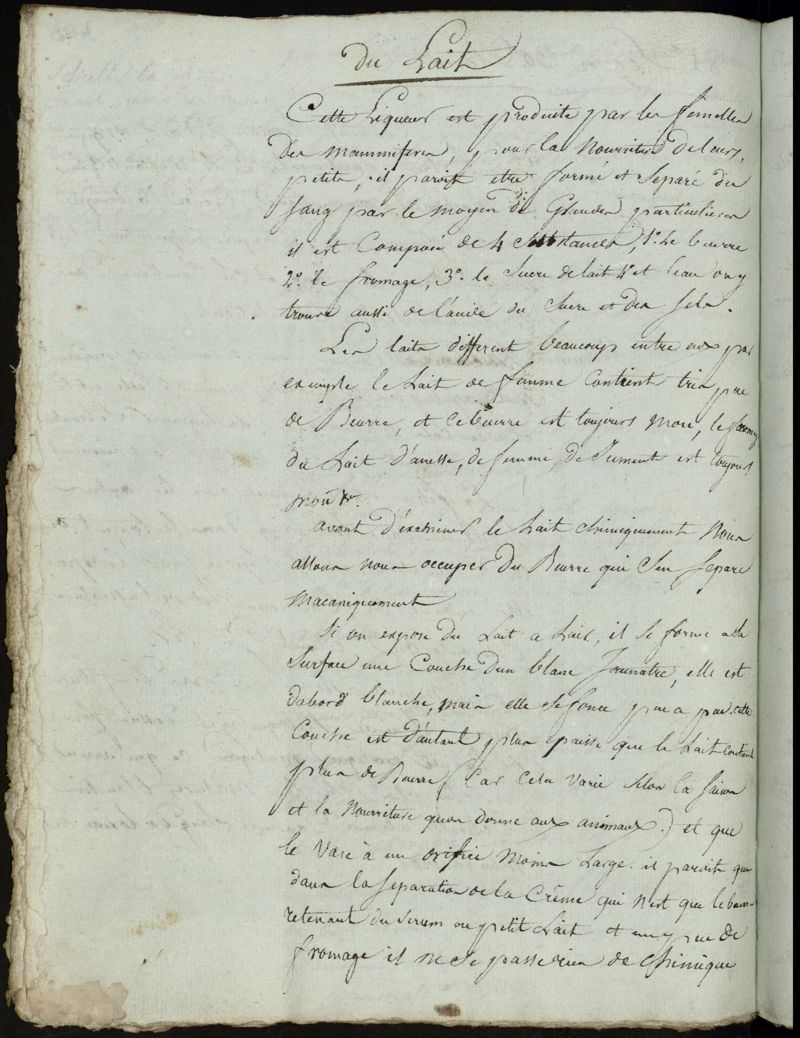 Du Lait
Cette Liqueur est produite par les femelles
des mammiferes, pour la Nourriture de leurs
petits, il paroit etre formé et Separé du
Sang par le moyen de Glandes particulieres
il est Composé de 4 Substances, 1º. Le beurre
2º. le fromage, 3º. le Sucre de lait 4º et l'eau on y
trouve aussi de l'acide du Sucre et des Sels.
Les laits different beaucoup entre eux par
exemple le Lait de femme Contient tres peu
de Beurre, et ce beurre est toujours mou, le
du Lait d'anesse, de femme, de Jument est toujours
mou &.
avant d'examiner le Lait chimiquement Nous
allons nous occuper du Beurre qui S'en Separe
Macaniquement
Si on expose du Lait a L'air, il se forme a la
Surface une Couche d'un blanc Jaunatre, elle est
d'abord blanche, mais elle se fonce peu a peu cette
Couche est d'autant plus epaisse que le Lait contient
plus de Beurre (Car cela Varie Selon la Saison
et la Nourriture qu'on donne aux animaux.) et que
le Vase à un orifice Moins Large. il paroit que
dans la Separation de la Crême qui n'est que le beurre
retenant du Serum ou petit Lait et un peu de
fromage il ne Se passe rien de Chimique